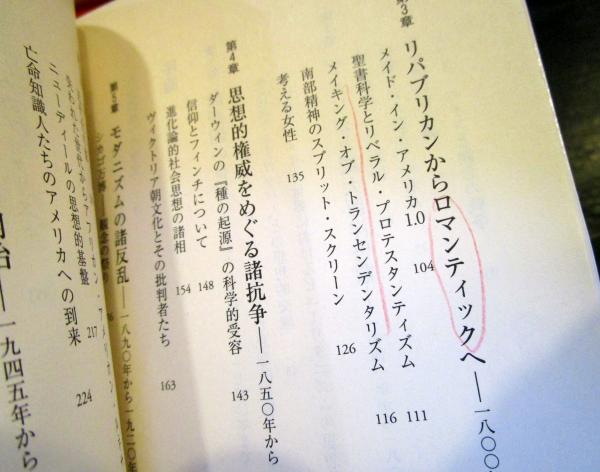 第3章 リパブリカンからロマンティックへ――一八〇〇
メイド・イン・アメリカ1.0 104
聖書科学とリベラル・プロテスタンティズム 111
メイキング・オブ・トランセンデンタリズム 116
南部精神のスプリット・スクリーン 126
考える女性 135
第4章 思想的権威をめぐる諸抗争――一八五〇年から
ダーウィンの『種の起源』の科学的受容 143
信仰とフィンチについて 148
進化論的社会思想の諸相 154
ヴィクトリア朝文化とその批判者たち 163
第5章 モダニズムの諸反乱――一八九〇年から一九二〇年
シカゴ万博――観念の祭り
失われた世代からアフリカン・アメリカン
ニューディールの思想的基盤 217
亡命知識人たちのアメリカへの到来 224
一九四五年から